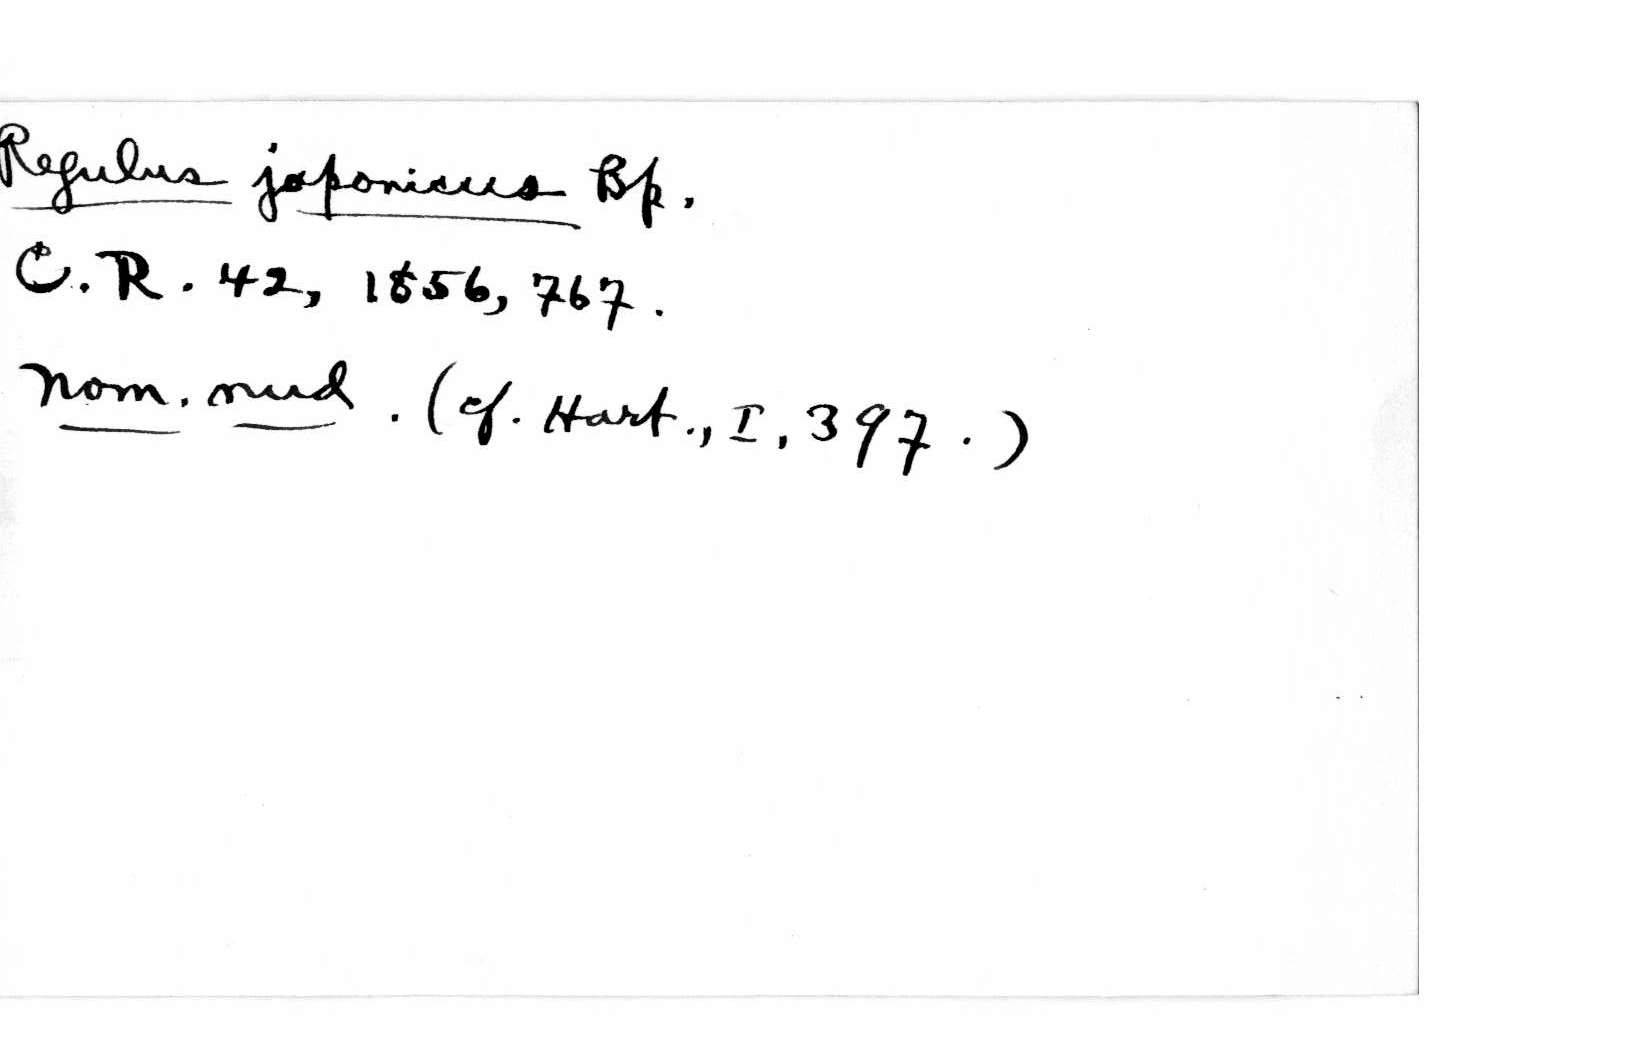 Regulus japonicus Bp.
C. R. 42, 1856, 767.
nom. nud. (cf. Hart., I, 397.)